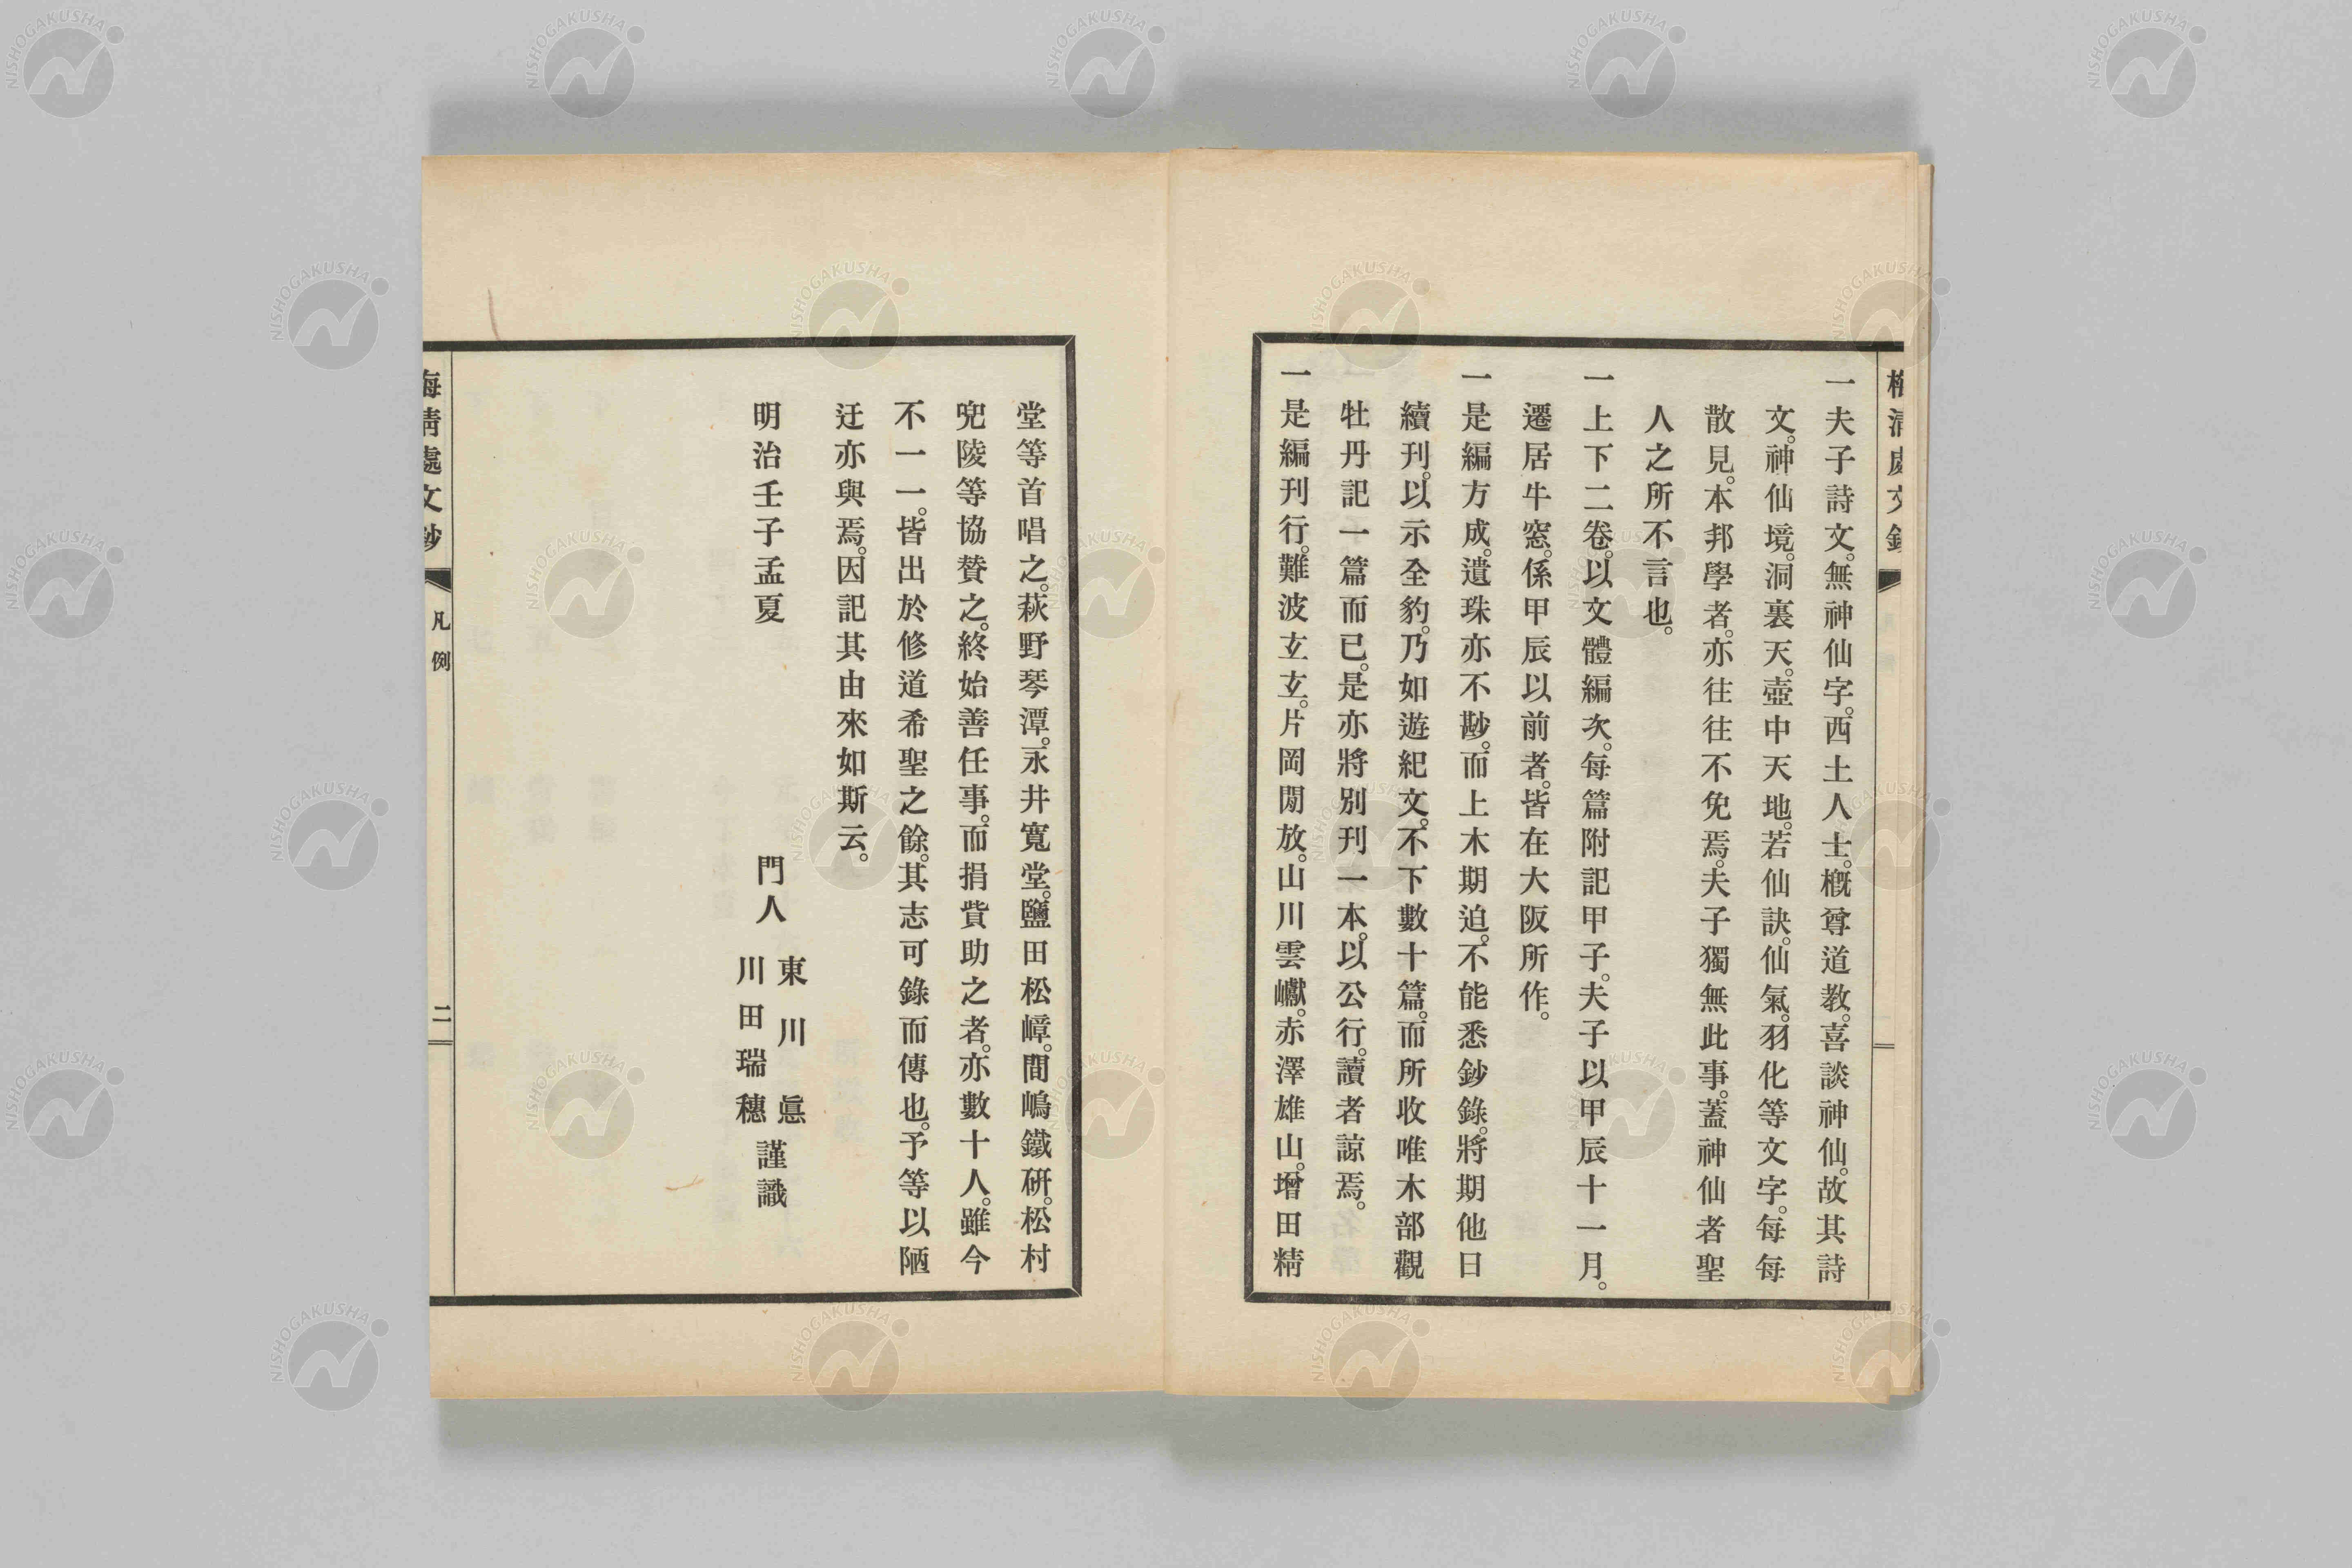 一夫子詩文。無神仙字。西土人士。槪尊道教。喜談神仙。故其詩
文。神仙境。洞裏天。壺中天地。若仙訣。仙氣。羽化等文字。每每
散見。本邦學者。亦往往不免焉。夫子獨無此事。蓋神仙者聖
人之所不言也。
一上下二卷。以文體編次。每篇附記甲子。夫子以甲辰十一月。
遷居牛窓。係甲辰以前者。皆在大阪所作。
一是編方成。遺珠亦不尠。而上木期迫。不能悉鈔錄。將期他日
續刊。以示全豹。乃如遊紀文。不下數十篇。而所收唯木部觀
牡丹記一篇而已。是亦將別刊一本。以公行。讀者諒焉。
一是編刊行。難波立立。片岡閒放。山川雲巘。赤澤雄山。增田精
堂等首唱之。萩野琴潭。永井寬堂。鹽田松嶂。間嶋鐵研。松村
兜陵等協賛之。終始善任事。而捐貲助之者。亦數十人。雖今
不一一。皆出於修道希聖之餘。其志可錄而傳也。予等以陋
迂亦與焉。因記其由來如斯云。
明治壬子孟夏
門人
東川 眞
川田瑞穗
謹識
梅清處文鈔
凡例
二
NISHOGAKUSHA